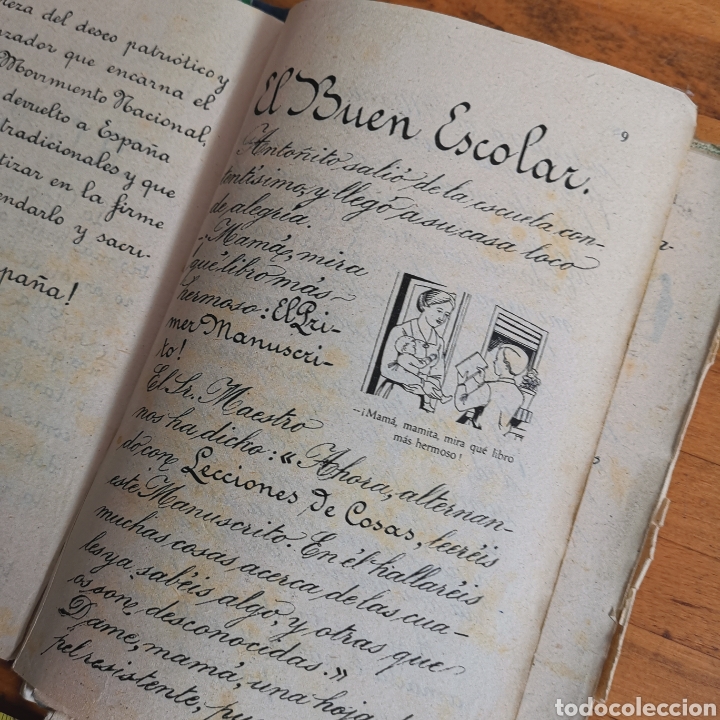 eza del deseo patriótico y
nzador que encarna el
Movimiento Nacional,
devuelto a España
tradicionales y que
tizar en la firme
endarlo y sacri-
paña!
9
El Buen Escolar.
Antoñito salió de la escuela con-
tentísimo, y llegó a su casa loco
de alegría.
—¡Mamá, mira
qué libro más
hermoso: El Pri-
mer Manuscri-
to!
El Sr. Maestro
nos ha dicho: «Ahora, alternan-
do con Lecciones de Cosas, leeréis
este Manuscrito. En él hallaréis
muchas cosas acerca de las cua-
les ya sabéis algo, y otras que
os son desconocidas.»
Dame, mamá, una hoja de
papel resistente,
—¡Mamá, mamita, mira qué libro
más hermoso!
todocoleccion